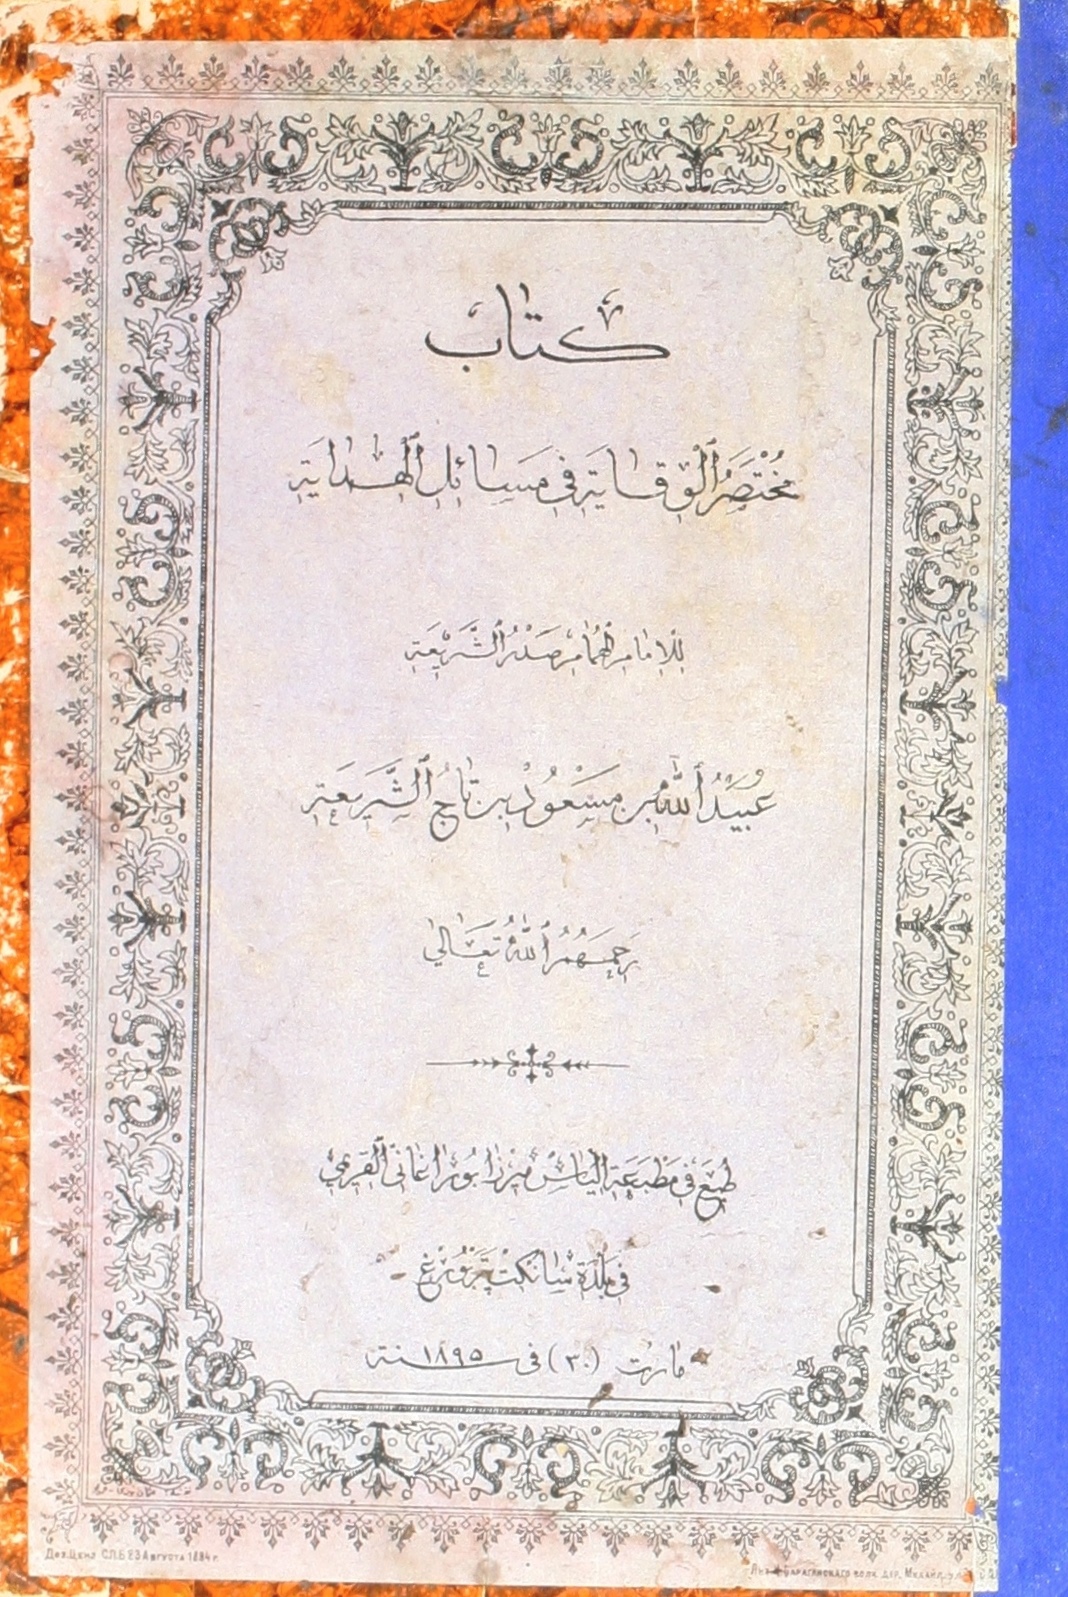 كتاب
مُخْتَصَرُ الْوِقَايَةِ فِي مَسَائِلِ الْهِدَايَةِ
لِلْإِمَامِ الْهُمَامِ صَدْرُ الشَّرِيعَةِ
عُبَيْدُ اللَّهِ بْنِ مَسْعُودْ بْنِ تَاجُ الشَّرِيعَةِ
رَحِمَهُمُ اللَّهُ تَعَالَى
طُبِعَ فِي مَطْبَعَةِ الْيَاسْ مِيرْزَا بُورَاغَانِي الْقِرِيمِي
فِي بَلْدَةِ سَانْكْتْ پَتَرْبُورْغْ
مارت (٣٠) في سنة ١٨٩٥
Доз. Ценз. С.П.Б 23 Августа 1894 г.